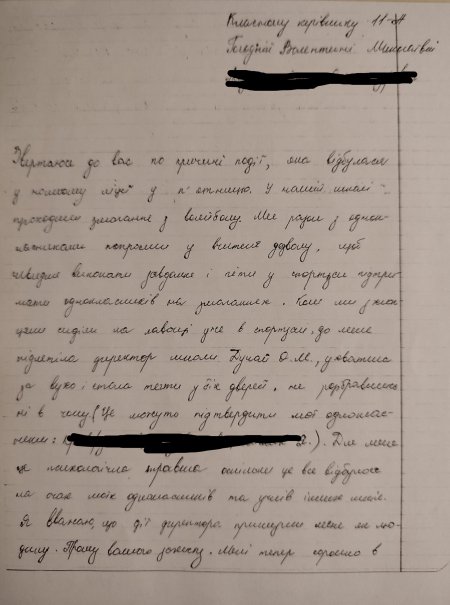 Класному керівнику 11-А
Погодній Валентині Миколаївні
Звертаюся до вас по причині події, яка відбулася
у нашому ліцеї у п'ятницю. У нашій школі
проходили змагання з волейболу. Ми разом з одно-
класниками попросили у вчителя дозволу, щоб
швидше виконати завдання і піти у спортзал підтри-
мати однокласників на змаганнях. Коли ми з хлоп-
цями сиділи на лавочці уже в спортзалі, до мене
підлетіла директор школи О.М., ухватила
за вухо і стала тягти у бік дверей, не розібравшись
ні в чому (Це можуть підтвердити мої однокла-
сники: ). Для мене
це психологічна травма оскільки це все відбулося
на очах моїх однокласників та учнів інших шкіл.
Я вважаю, що дії директора принизили мене як лю-
дину. Прошу вашого захисту. Мені тепер соромно в